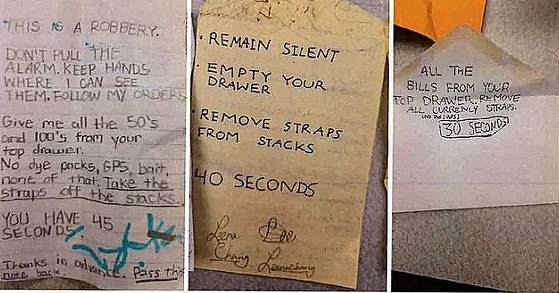 THIS IS A ROBBERY.
DON'T PULL THE
ALARM. KEEP HANDS
WHERE I CAN SEE
THEM. FOLLOW MY ORDERS
Give me all the 50's
and 100's from your
top drawer.
No dye packs, GPS, bait,
none of that. Take the
straps off the stacks.
YOU HAVE 45
SECONDS.
Thanks in advance. Pass this
note back.
• REMAIN SILENT
• EMPTY YOUR
DRAWER
• REMOVE STRAPS
FROM STACKS
40 SECONDS
Leena
Ching Leenaching
ALL THE
BILLS FROM YOUR
TOP DRAWER. REMOVE
ALL CURRENCY STRAPS.
30 SECONDS!